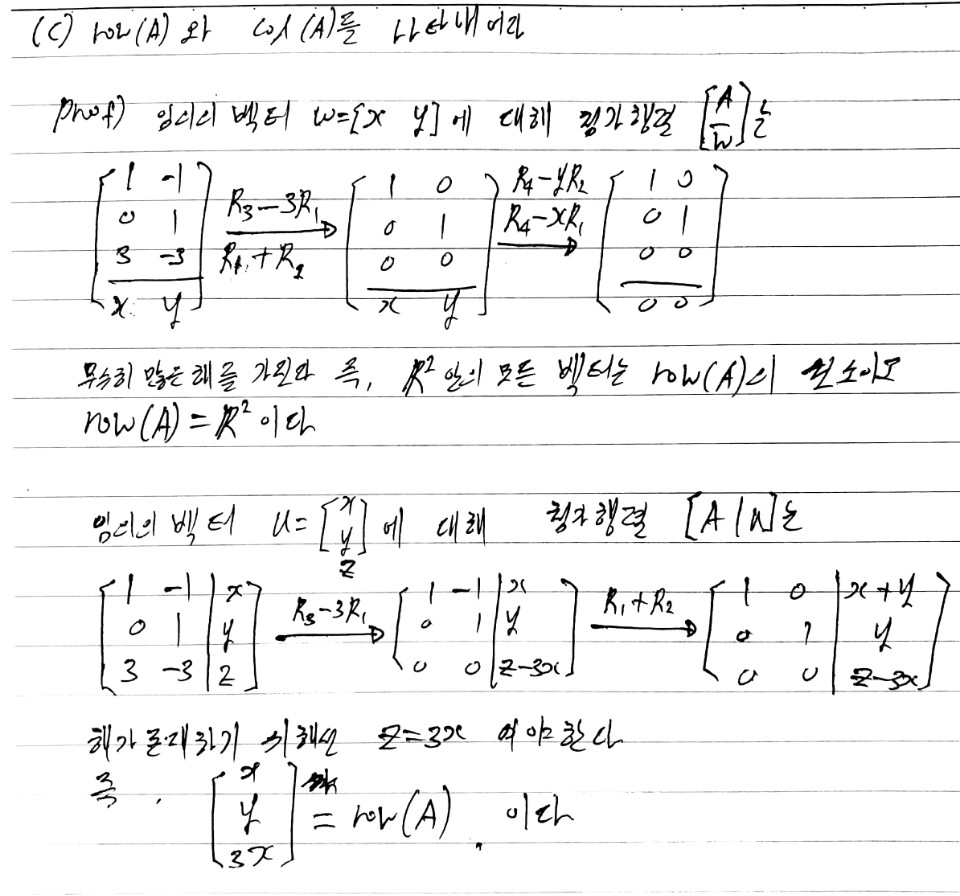 (c) row(A) 와 col(A)를 나타내어라
Proof) 임의의 벡터 w=[x y]에 대해 첨가행렬 [A/w]는
[1 -1; 0 1; 3 -3; x y] R₃-3R₁, R₁+R₂ → [1 0; 0 1; 0 0; x y] R₄-yR₂, R₄-xR₁ → [1 0; 0 1; 0 0; 0 0]
무수히 많은 해를 가진다 즉, R² 안의 모든 벡터는 row(A)의 원소이고
row(A) = R² 이다
임의의 벡터 u=[x; y; z]에 대해 첨가행렬 [A|u]는
[1 -1 | x; 0 1 | y; 3 -3 | z] R₃-3R₁ → [1 -1 | x; 0 1 | y; 0 0 | z-3x] R₁+R₂ → [1 0 | x+y; 0 1 | y; 0 0 | z-3x]
해가 존재하기 위해선 z=3x 여야 한다
즉, [x; y; 3x] = row(A) 이다.